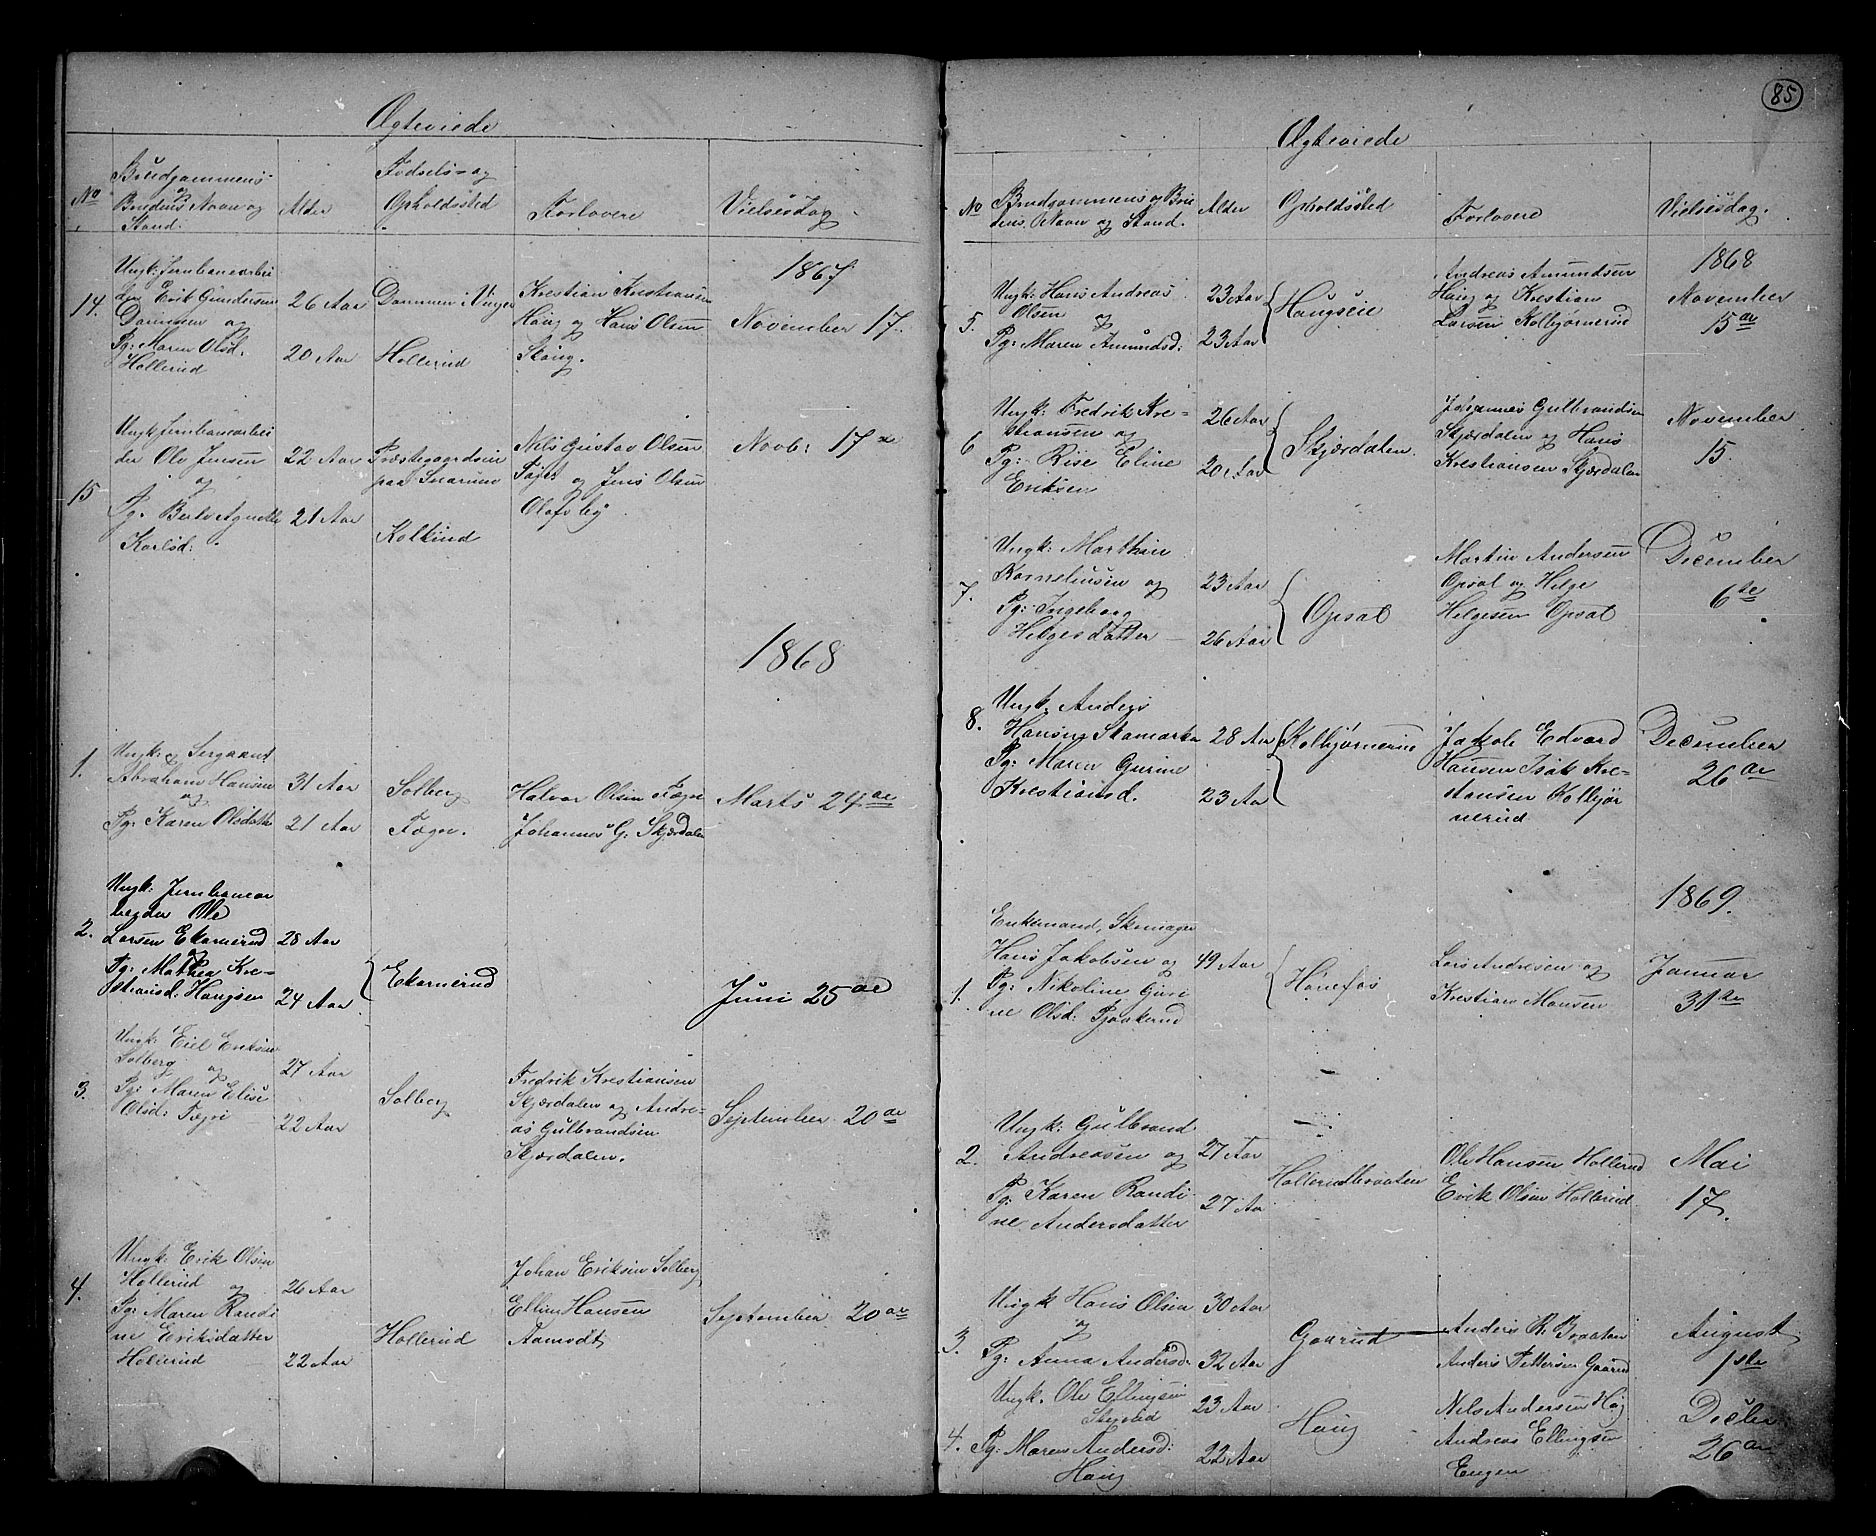 85
Ægteviede
No
Brudgommens
og
Brudens Navn og
Stand.
Alder
Fødsels- og
Opholdssted
Forlovere
Vielsesdag
1867.
14.
Ungk: Jernbanearbei
der Erik Gundersen
Dammen og
Pg: Maren Olsd.
Hollerud
26 Aar
20 Aar
Dammen i Vinger
Hollerud
Krestian Krestiansen
Haug og Hans Olsen
Skaug.
November 17.
15
Ungk Jernbanearbei
der Ole Jensen
og
Pg. Berte Agnette
Karlsd:
22 Aar
21 Aar
Præstegaardseie
paa Snarum
Kolkind
Nils Gustav Olsen
og Jens Olsen
Olafsby
Novb: 17de
1868
1.
Ungk: og Sergeant
Abraham Hansen
og
Pg: Karen Olsdatter
31 Aar
21 Aar
Solberg
Fægri.
Halvor Olsen Fægri
Johannes G: Skjærdalen
Marts 24de
2.
Ungk: Jernbanear
beyder Ole
Larsen Ekornerud
og
Pg: Mathea Kre-
stiansd: Haugsen
28 Aar
24 Aar
Ekornerud
Juni 25de
3.
Ungk: Eiel Eriksen
Solberg og
Pg: Maren Elise
Olsd: Fægri
27 Aar
22 Aar
Solberg
Fredrik Krestiansen
Skjærdalen og Andre-
as Gulbrandsen
Skjærdalen.
September 20de
4.
Ungk: Erik Olsen
Hollerud og
Pg: Maren Randi
ne Eriksdatter
Hollerud
26 Aar
22 Aar
Hollerud
Johan Eriksen Solberg
Elling Hansen
Aamodt
September 20de
Ægteviede
No
Brudgommens og Bru
dens Navn og Stand.
Alder
Opholdssted
Forlovere
Vielsesdag.
1868
5.
Ungk: Hans Andreas
Olsen og
Pg: Maren Amundsd:
23 Aar
23 Aar
Haugseie
Andreas Amundsen
Haug og Krestian
Larsen Kolbjørnerud
November
15de
6
Ungk: Fredrik Kre-
stiansen og
Pg: Rise Eline
Eriksen
26 Aar
20 Aar
Skjærdalen.
Johannes Gulbrandsen
Skjærdalen og Hans
Krestiansen Skjærdalen
November
15.
7.
Ungk: Marthin
Korneliusen og
Pg: Ingeborg
Helgesdatter
23 Aar
26 Aar
Opsal
Martin Andersen
Opsal og Helge
Helgesen Opsal
December
6te
8.
Ungk: Anders
Hansen Skamarka
Pg: Maren Gurine
Krestiansd.
28 Aar
23 Aar
Kolbjørnerud
Jakob Edvard
Hansen Isak Kre-
stansen Kolbjør
nerud
December
26de
1869.
1.
Enkemand, Skomager
Hans Jakobsen og
Pg: Nikoline Guri
ne Olsd:
49 Aar
Hønefos
Lars Andresen og
Kristian Monsen
Januar
31te
2.
Ungk: Gulbrand
Andreasen og
Pg: Karen Randi
ne Andersdatter
27 Aar
27 Aar
Hollerudbraaten
Ole Hansen Hollerud
Erik Olsen Hollerud
Mai
17.
3.
Ungk Hans Olsen
og
Pg: Anna Andersd.
30 Aar
32 Aar
Gaarud
Anders R. Braaten
Anders Pettersen Gaarud
August
1ste
4.
Ungk. Ole Ellingsen
Pg: Maren Andersd:
Haug
23 Aar
22 Aar
Haug
Nils Andersen Haug
Andreas Ellingsen
Engen
Decbr
26de